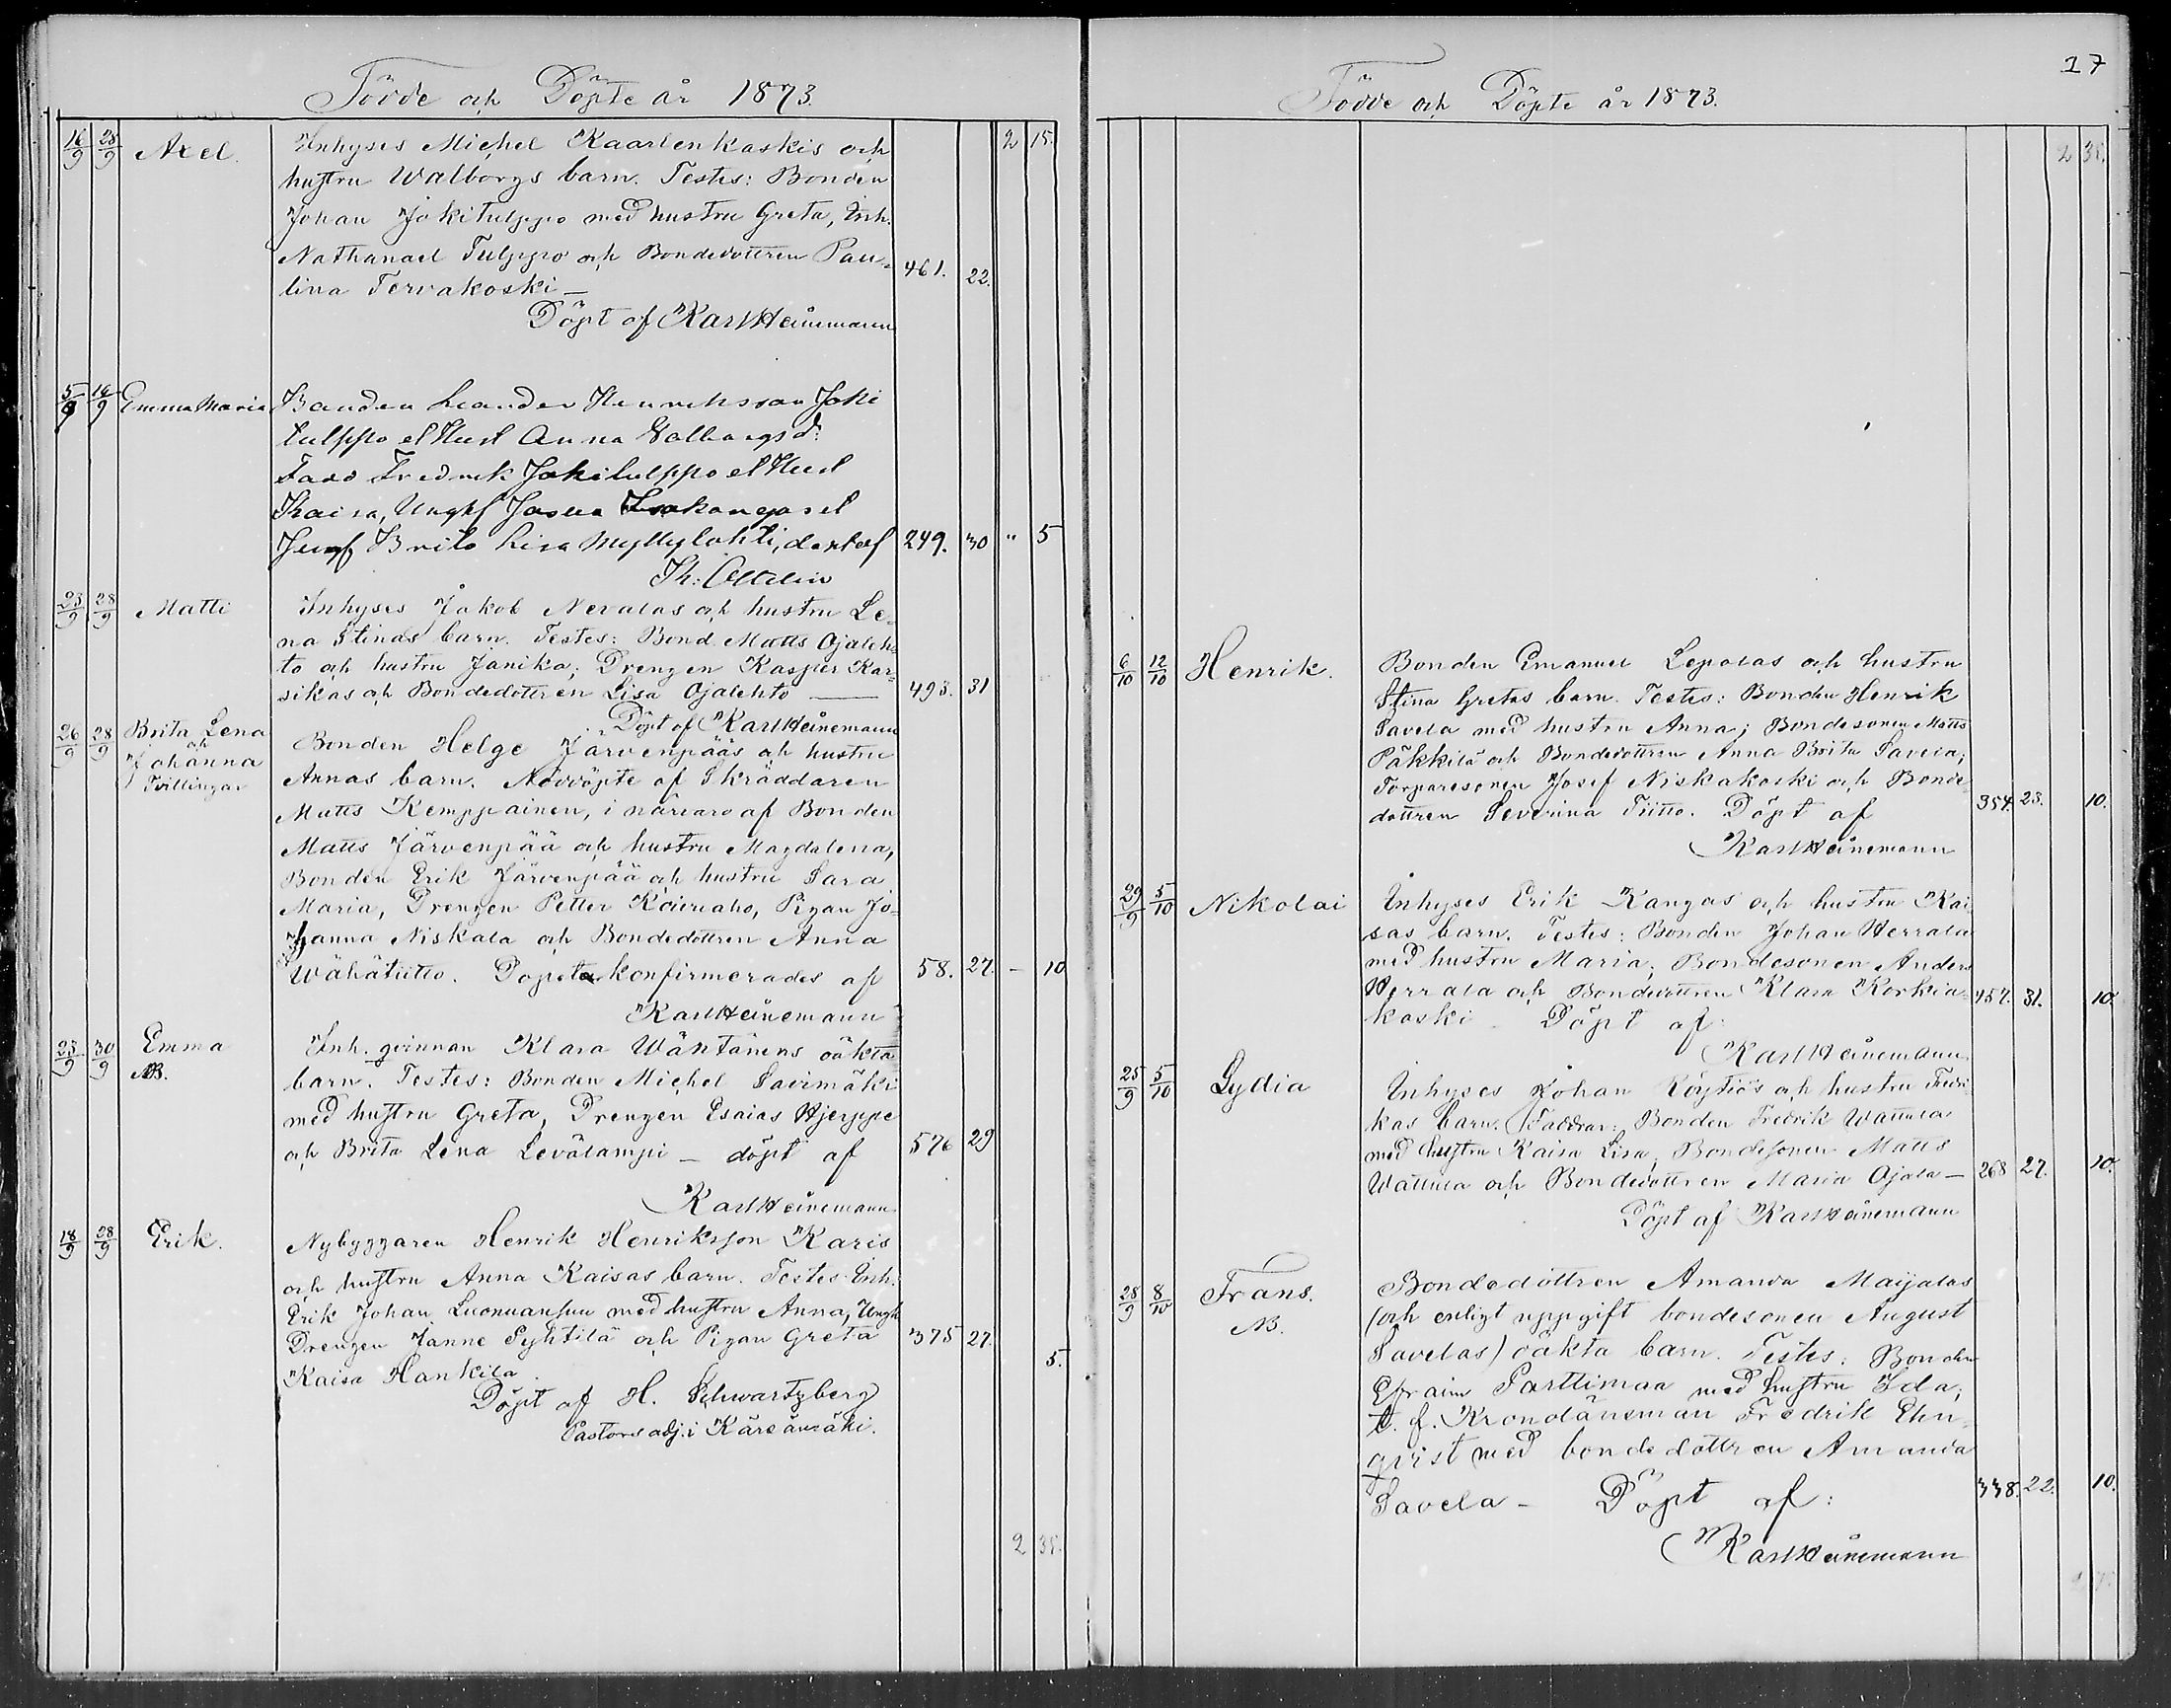 Födde och Döpte år 1873.
2 15.
16/9 28/9 Axel. Inhyses Michel Kaarlenkaskis och
hustru Walborgs barn. Testes: Bonden
Johan Jokitulppo med hustru Greta, Inh.
Nathanael Tulppo och Bondedottren Pau-
lina Tervakoski — 461. 22.
Döpt af Karl Heinemann
5/9 14/9 Emma Maria Bonden Leander Henriksson Joki
tulppo et Hust Anna Valborgsd:
Fadd Fredrik Jokitulppo et Hust
Kaisa, Ungk Josua Isokangas et
Jungf Brita Lisa Myllylahti, döpt af 249. 30 " 5
23/9 28/9 Matti Inhyses Jakob Nevalas och hustru Le-
na Stinas barn. Testes: Bond. Matts Ojaleh-
to och hustru Janika; Drengen Kasper Kar-
sikas och Bondedottren Lisa Ojalehto — 493. 31
Döpt af Karl Heinemann
26/9 28/9 Brita Lena
och
Johanna
Tvillingar
Bonden Helge Järvenpääs och hustru
Annas barn. Nöddöpte af Skräddaren
Matts Kemppainen, i närvaro af Bonden
Matts Järvenpää och hustru Magdalena,
Bonden Erik Järvenpää och hustru Sara
Maria, Drengen Petter Koivuaho, Pigan Jo-
hanna Niskala och Bondedottren Anna
Wähätiitto. Dopet konfirmerades af 58. 27. - 10
Karl Heinemann
23/9 30/9 Emma
NB.
Inh. qvinnan Klara Wäntänens oäkta
barn. Testes: Bonden Michel Savimäki
med hustru Greta, Drengen Esaias Hjerppe
och Brita Lena Levälampi — döpt af 576 29
Karl Heinemann
18/9 28/9 Erik. Nybyggaren Henrik Henriksson Karis
och hustru Anna Kaisas barn. Testes Inh.
Erik Johan Luonuansuu med hustru Anna, Ungk
Drengen Janne Pyhtilä och Pigan Greta 375 27.
Kaisa Hankila. 5.
Döpt af H. Schwartzberg
Pastors adj. i Kärsämäki.
2 35.
17
Födde och Döpte år 1873.
2 35.
6/10 12/10 Henrik. Bonden Emanuel Lepolas och hustru
Stina Gretas barn. Testes: Bonden Henrik
Savela med hustru Anna; Bondesonen Matts
Päkkilä och Bondedottren Anna Brita Savela;
Torparesonen Josef Niskakoski och Bonde-
dottren Severina Tiitto. Döpt af 354. 23. 10.
Karl Heinemann
29/9 5/10 Nikolai Inhyses Erik Kangas och hustru Kai-
sas barn. Testes: Bonden Johan Herrala
med hustru Maria; Bondesonen Anders
Herrala och Bondedottren Klara Korkia- 457. 31. 10.
koski - Döpt af:
Karl Heinemann
25/9 5/10 Lydia Inhyses Johan Köytiös och hustru Fredri-
kas barn. Faddrar: Bonden Fredrik Wattula
med hustru Kaisa Lisa, Bondesonen Matts
Wattula och Bondedottren Maria Ojala — 268 27. 10.
Döpt af Karl Heinemann
28/9 8/10 Frans.
NB.
Bondedottren Amanda Maijalas
(och enligt uppgift bondesonen August
Savelas) oäkta barn. Testes: Bonden
Efraim Parttimaa med hustru Ida;
t. f. Kronolänsman Fredrik Ehn-
qvist med bondedottren Amanda
Savela - Döpt af: 338. 22. 10.
Karl Heinemann